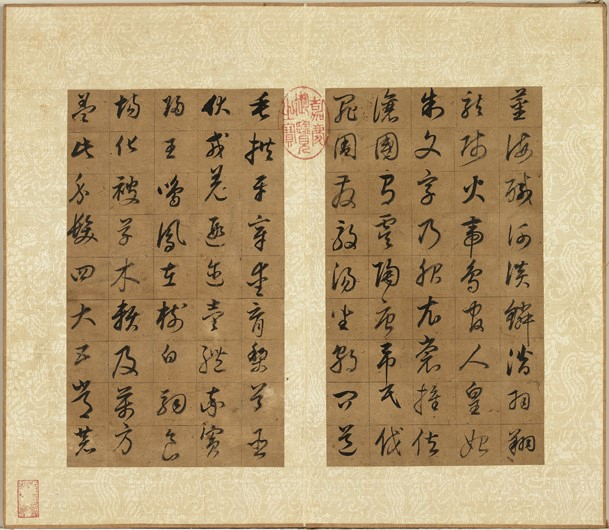 薑海鹹河淡鱗潛羽翔
龍師火帝鳥官人皇始
制文字乃服衣裳推位
讓國有虞陶唐弔民伐
罪周發殷湯坐朝問道
垂拱平章愛育黎首臣
伏戎羌遐邇壹體率賓
歸王鳴鳳在樹白駒食
場化被草木賴及萬方
蓋此身髮四大五常恭
嘉慶
御覽
之寶